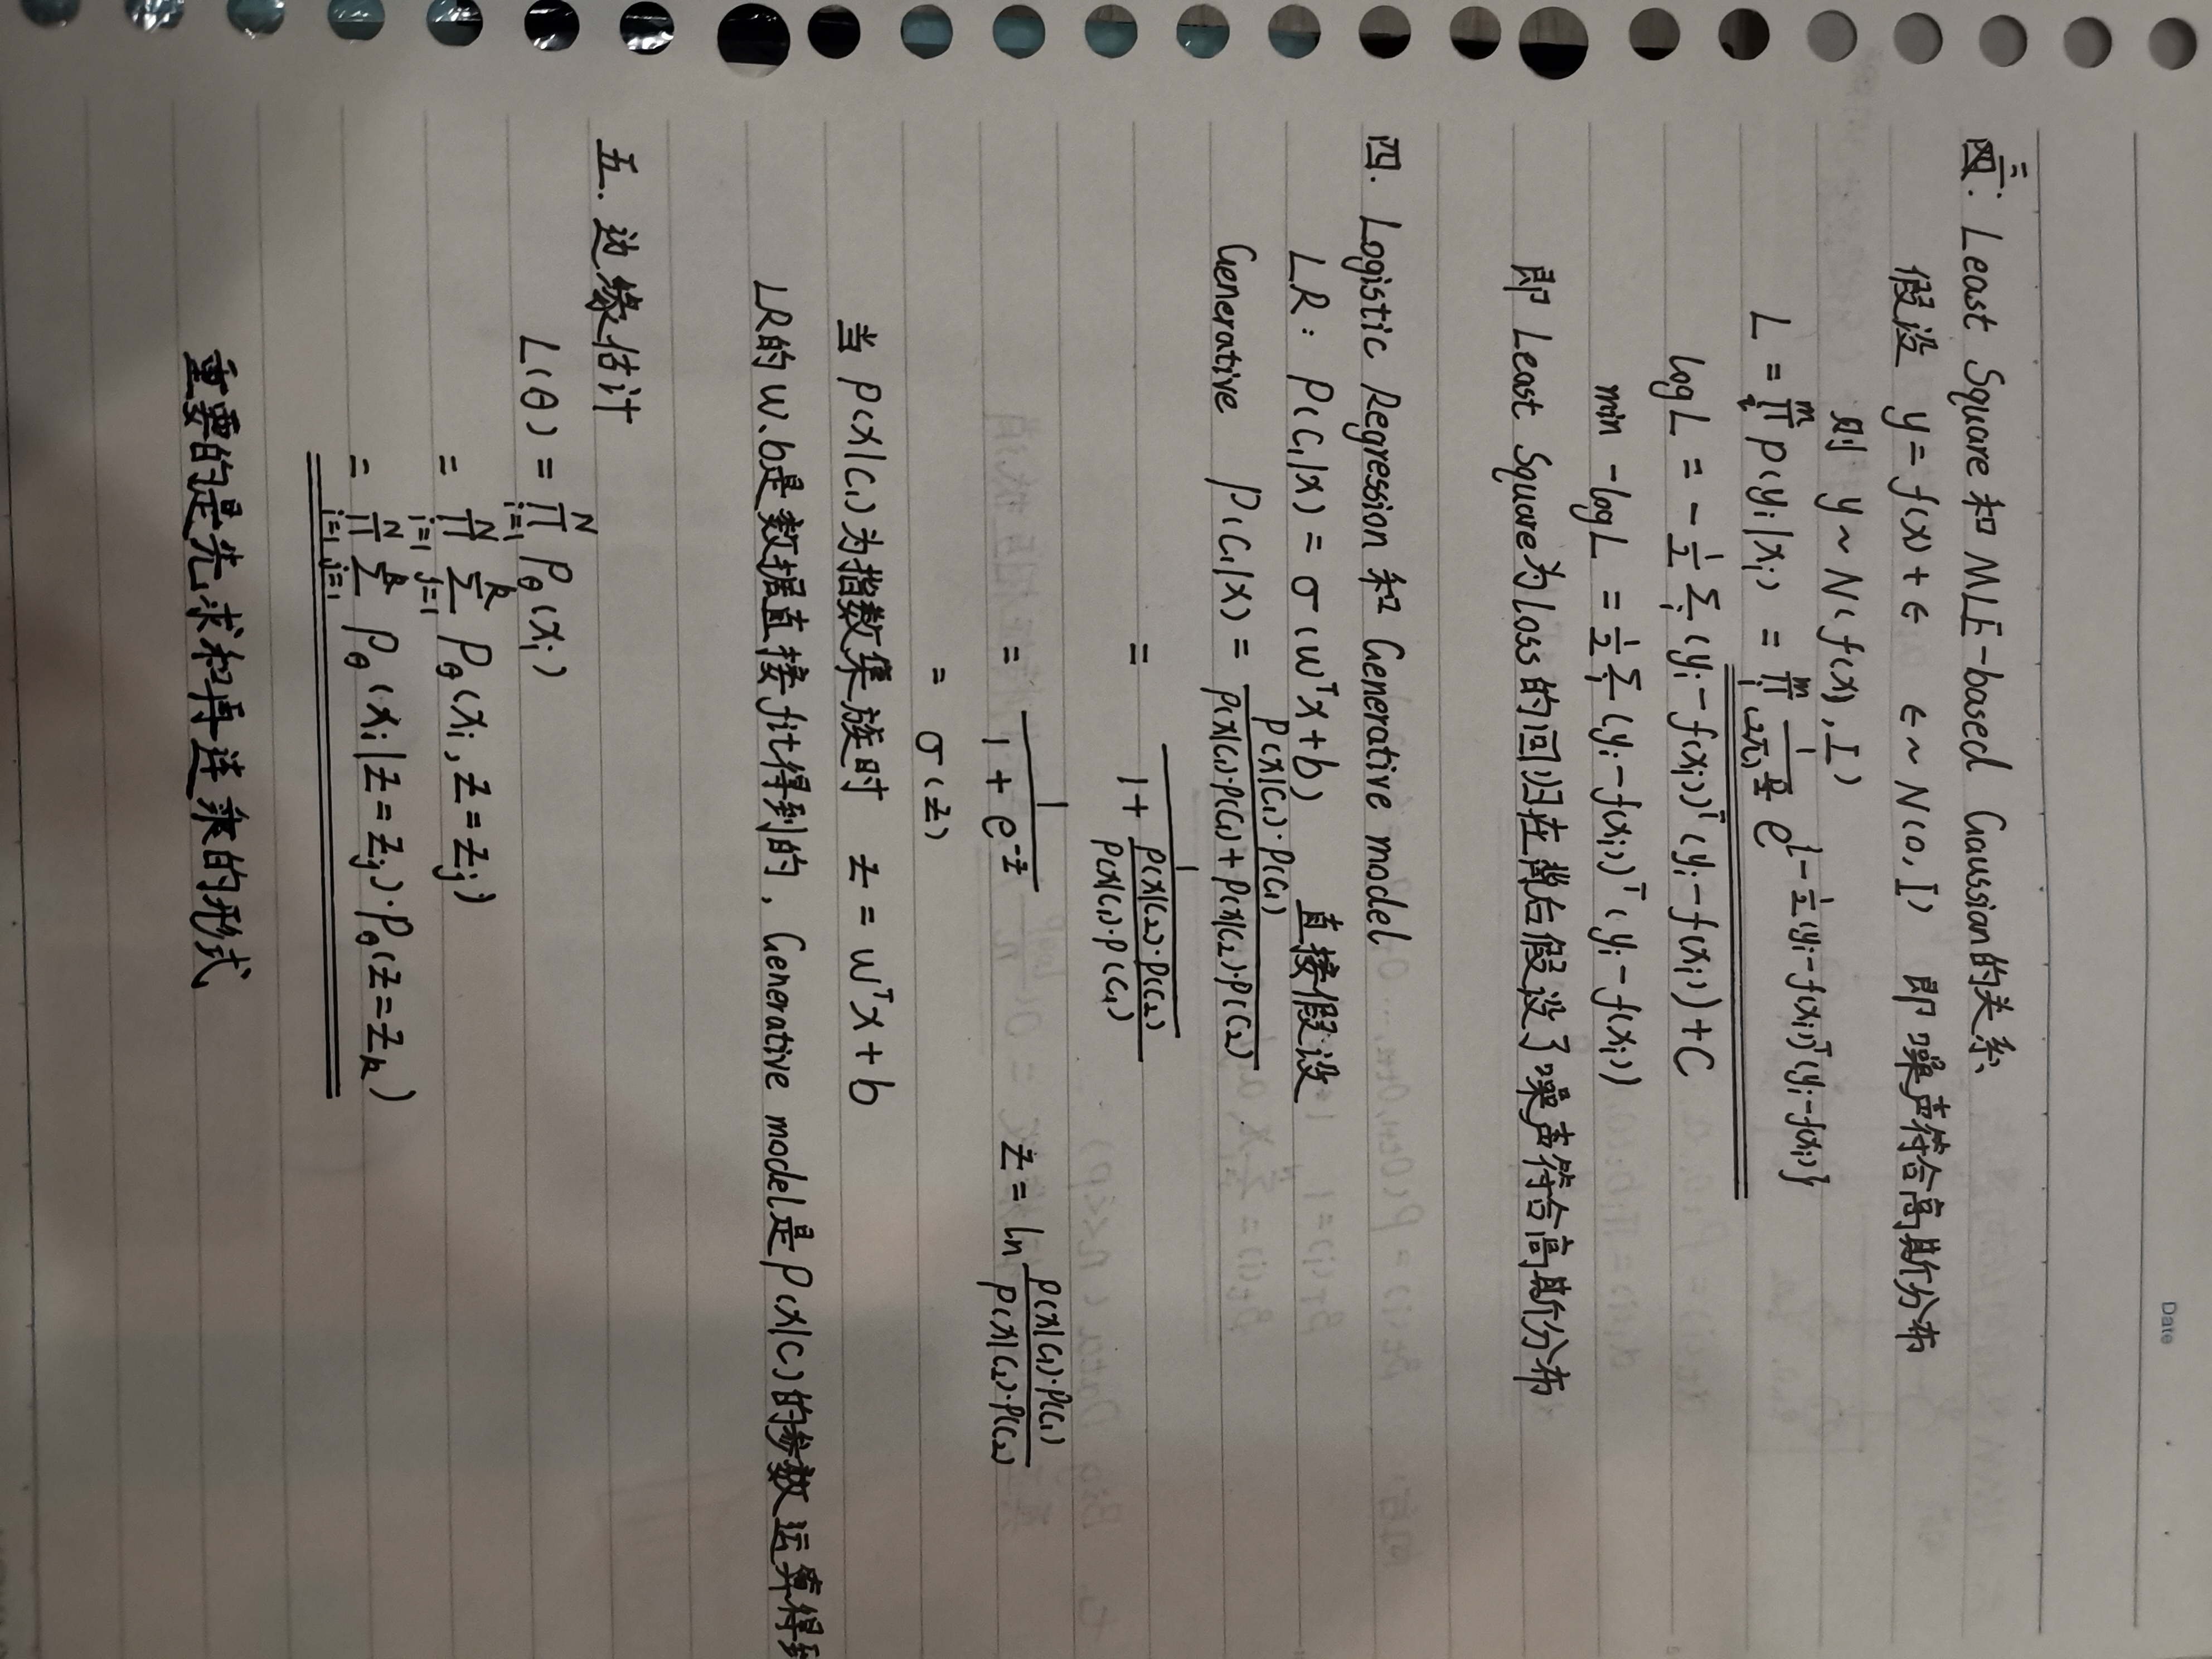 Date
三: Least Square 和 MLE-based Gaussian的关系
假设 y = f(x) + ϵ ϵ ~ N(0, I) 即噪声符合高斯分布
则 y ~ N(f(x), I)
L = ∏_i^m p(y_i|x_i) = ∏_i^m 1/(2π)^{D/2} e^{-1/2 (y_i - f(x_i))^T (y_i - f(x_i)}
log L = -1/2 Σ_i (y_i - f(x_i))^T (y_i - f(x_i)) + C
min -log L = 1/2 Σ_i (y_i - f(x_i))^T (y_i - f(x_i))
即 Least Square为loss的回归在背后假设了噪声符合高斯分布
四. Logistic Regression 和 Generative model
LR: P(C₁|x) = σ(w^T x + b) 直接假设
Generative P(C₁|x) = P(x|C₁)·P(C₁) / P(x|C₁)·P(C₁) + P(x|C₂)·P(C₂)
= 1 / 1 + P(x|C₂)·P(C₂) / P(x|C₁)·P(C₁)
= 1 / 1 + e^{-z} z = ln P(x|C₁)·P(C₁) / P(x|C₂)·P(C₂)
= σ(z)
当 P(x|C₁)为指数族时 z = w^T x + b
LR的w、b是数据直接fit得到的, Generative model是P(x|C)的参数运算得到
五. 边缘估计
L(θ) = ∏_{i=1}^N P_θ(x_i)
= ∏_{i=1}^N Σ_{j=1}^k P_θ(x_i, z = z_j)
= ∏_{i=1}^N Σ_{j=1}^k P_θ(x_i|z = z_j)·P_θ(z = z_k)
重要的是先求和再连乘的形式